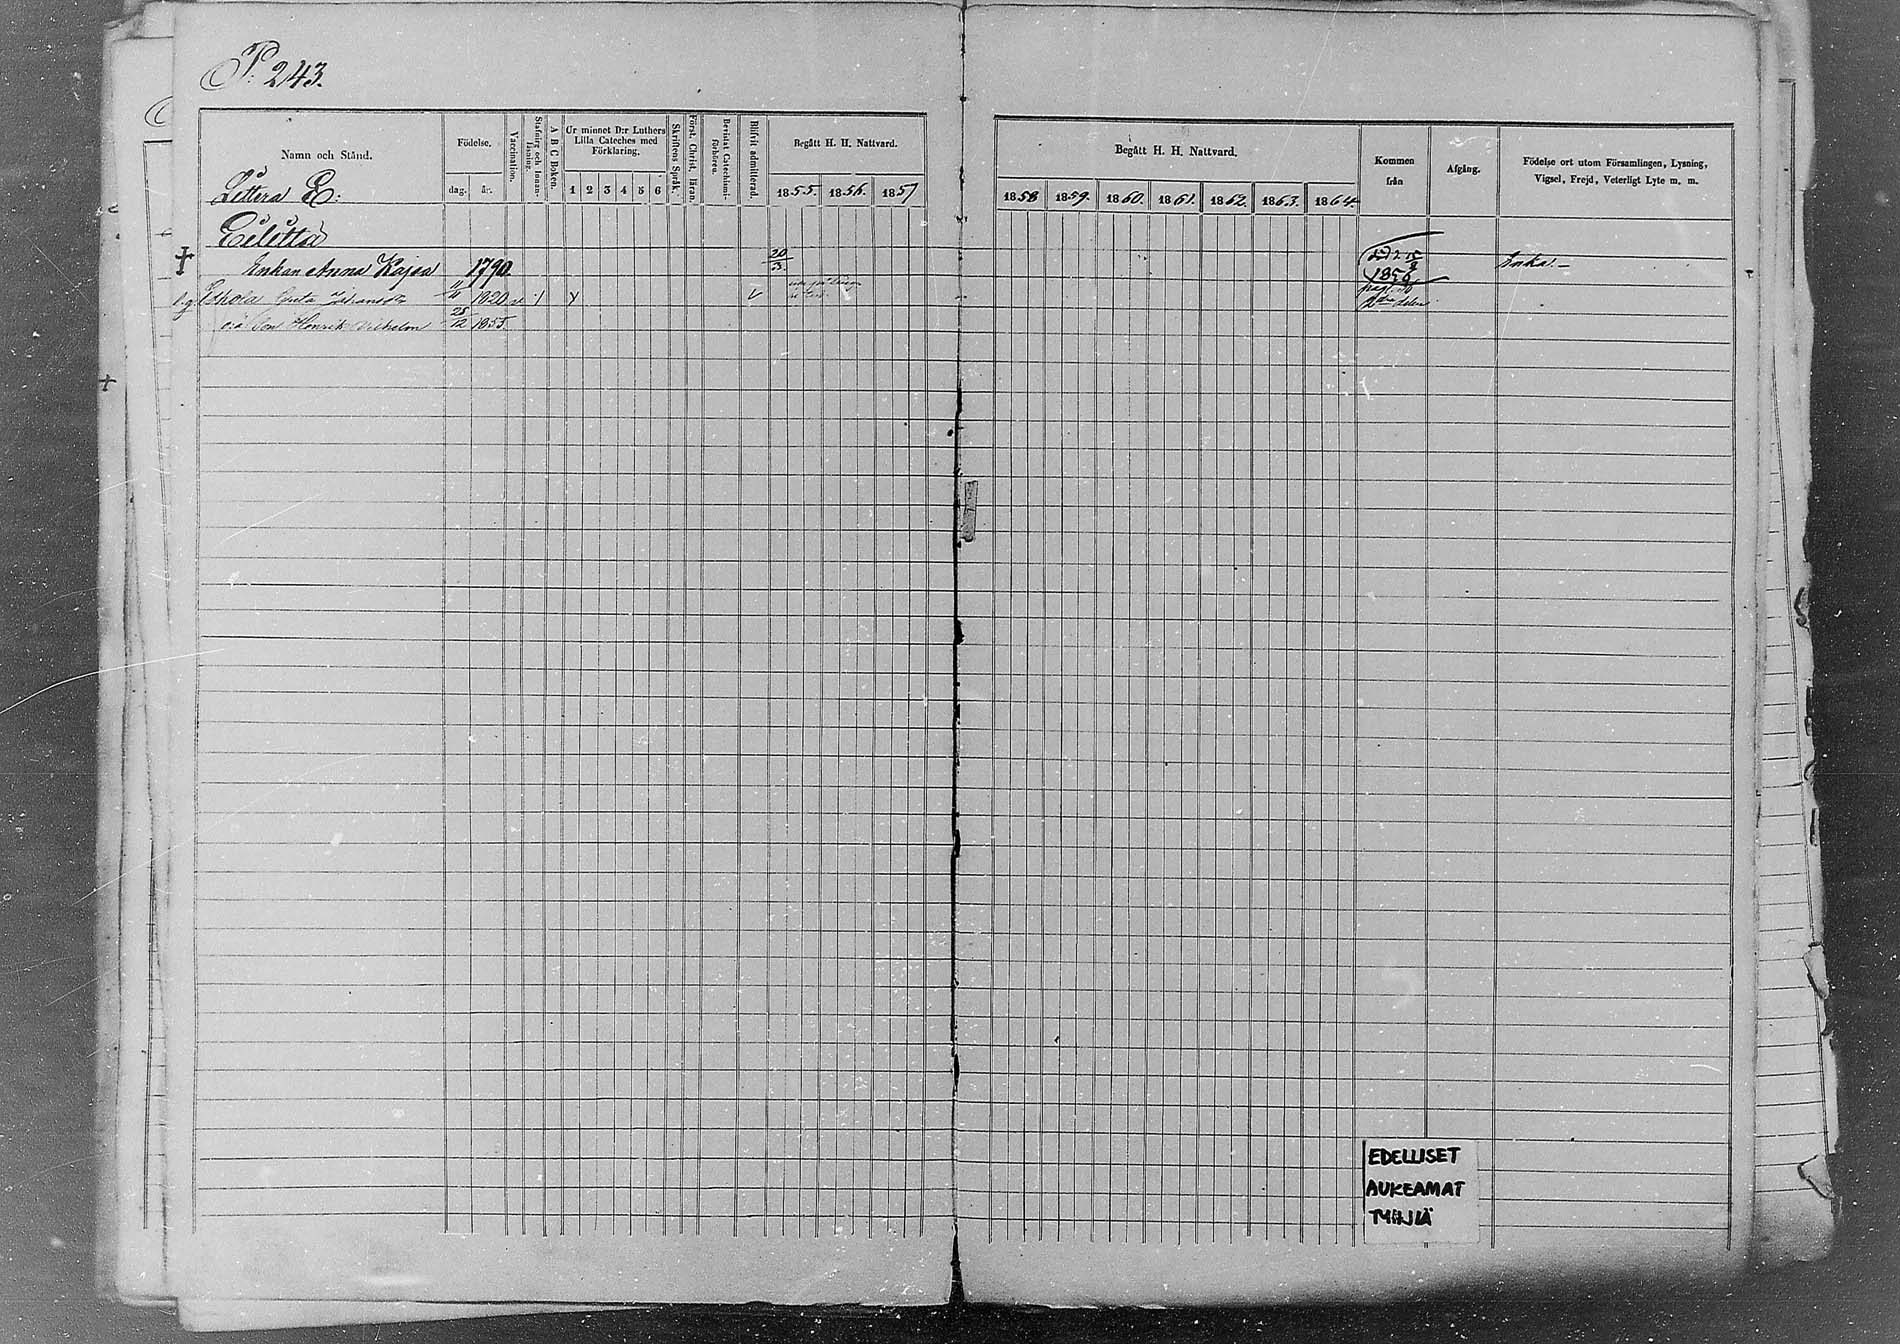 P. 243.
Namn och Stånd.
Födelse.
dag. år.
Vaccination.
Stafning och Innanläsning.
A B C Boken.
Ur minnet D:r Luthers Lilla Cateches med Förklaring.
1 2 3 4 5 6
Skriftens Språk.
Förest. Christ. läran.
Bevistat Catechismiförhören.
Blifvit admitterad.
Begått H. H. Nattvard.
1855. 1856. 1857
Begått H. H. Nattvard.
1858 1859. 1860. 1861. 1862. 1863. 1864
Kommen från
Afgång.
Födelse ort utom Församlingen, Lysning,
Vigsel, Frejd, Veterligt Lyte m. m.
Littera E:
Enkan Anna Kajsa 1790. 20/3. 1856 Enka.
Greta 1820
Son Henrik Wilhelm 28/12 1855.
EDELLISET
AUKEAMAT
TYHJIÄ